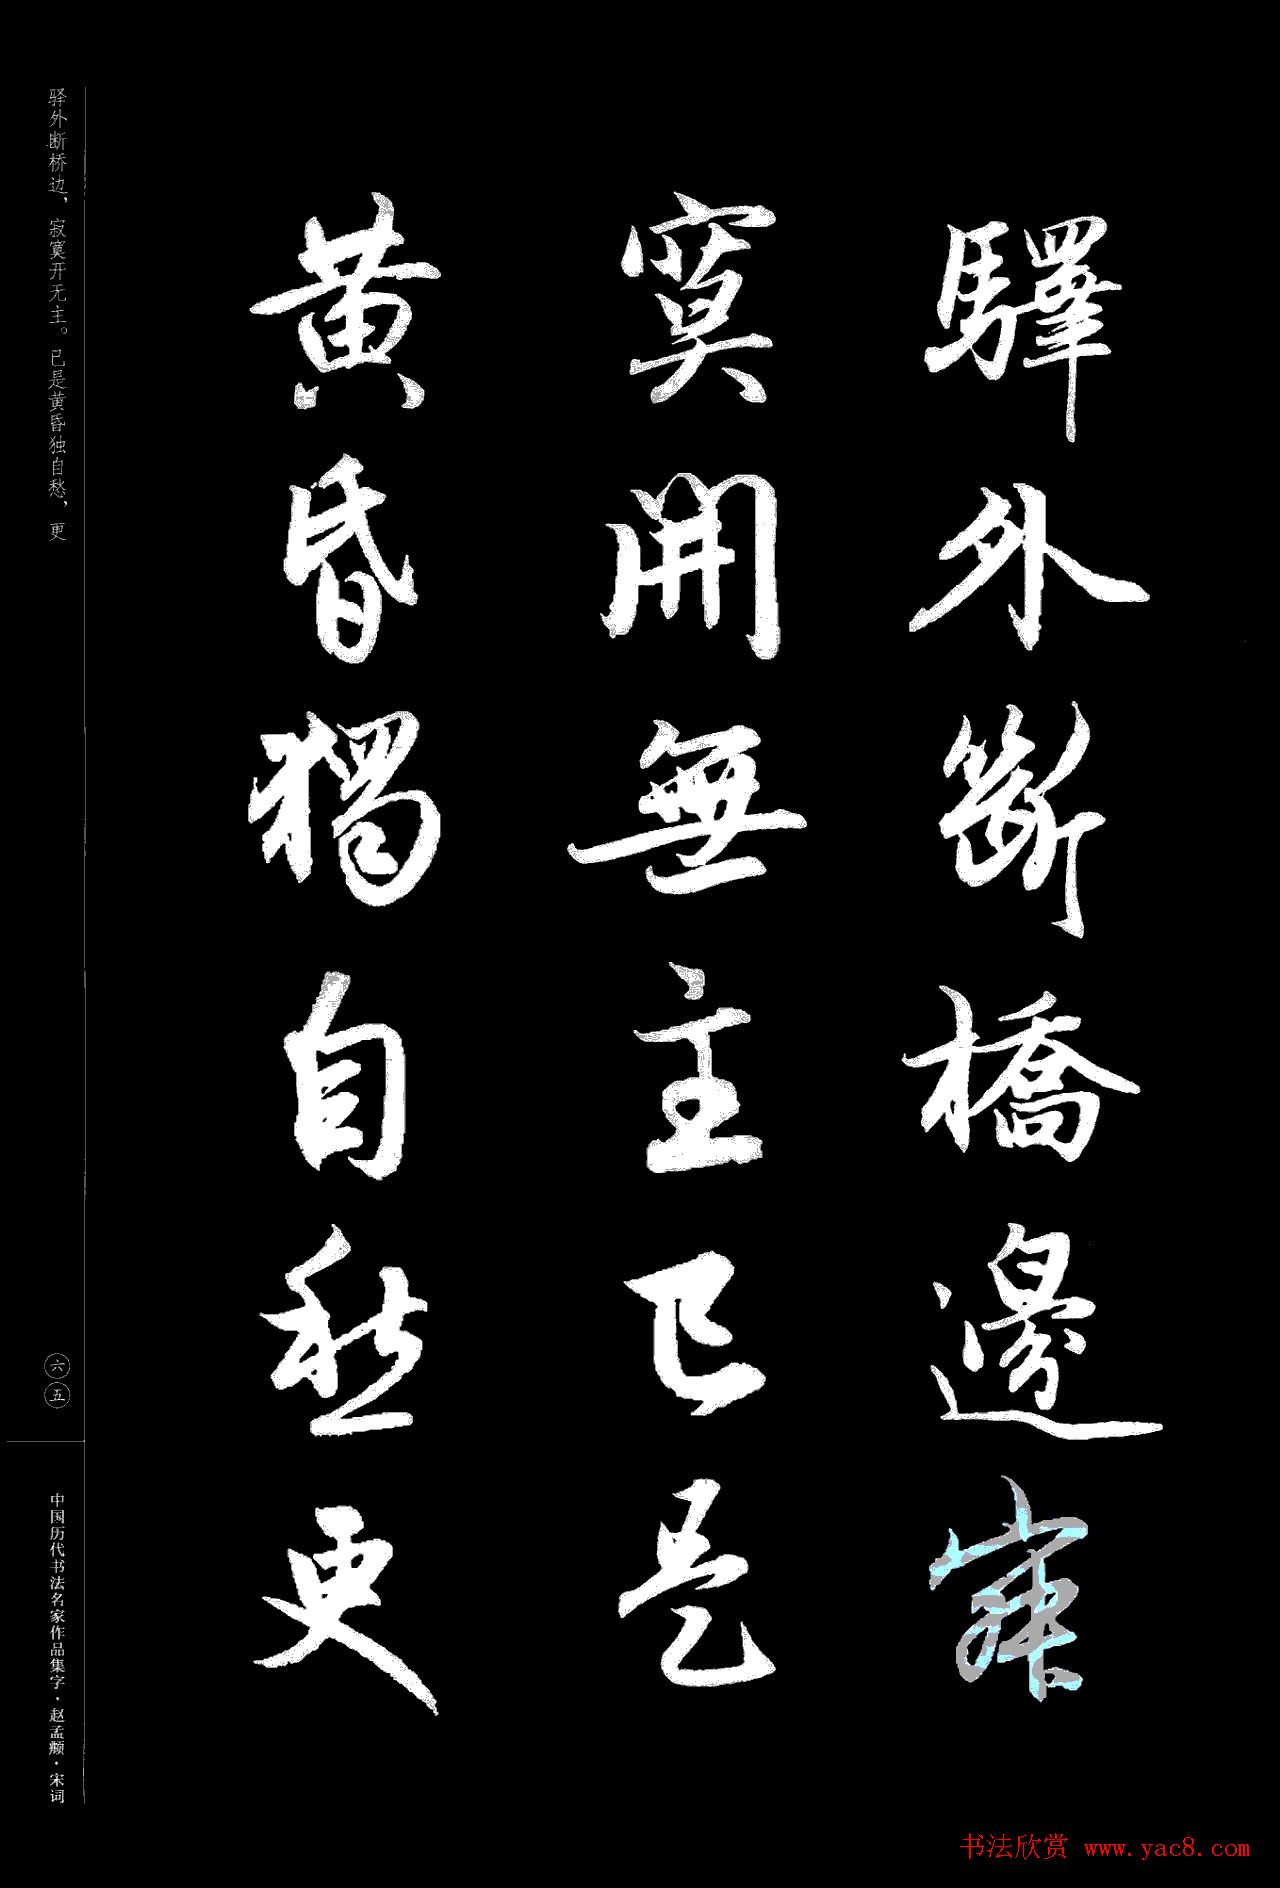 驛外斷橋邊寂
寞開無主已是
黄昏獨自愁更
驿外断桥边，寂寞开无主。已是黄昏独自愁，更
六五
中国历代书法名家作品集字·赵孟頫·宋词
书法欣赏 www.yac8.com